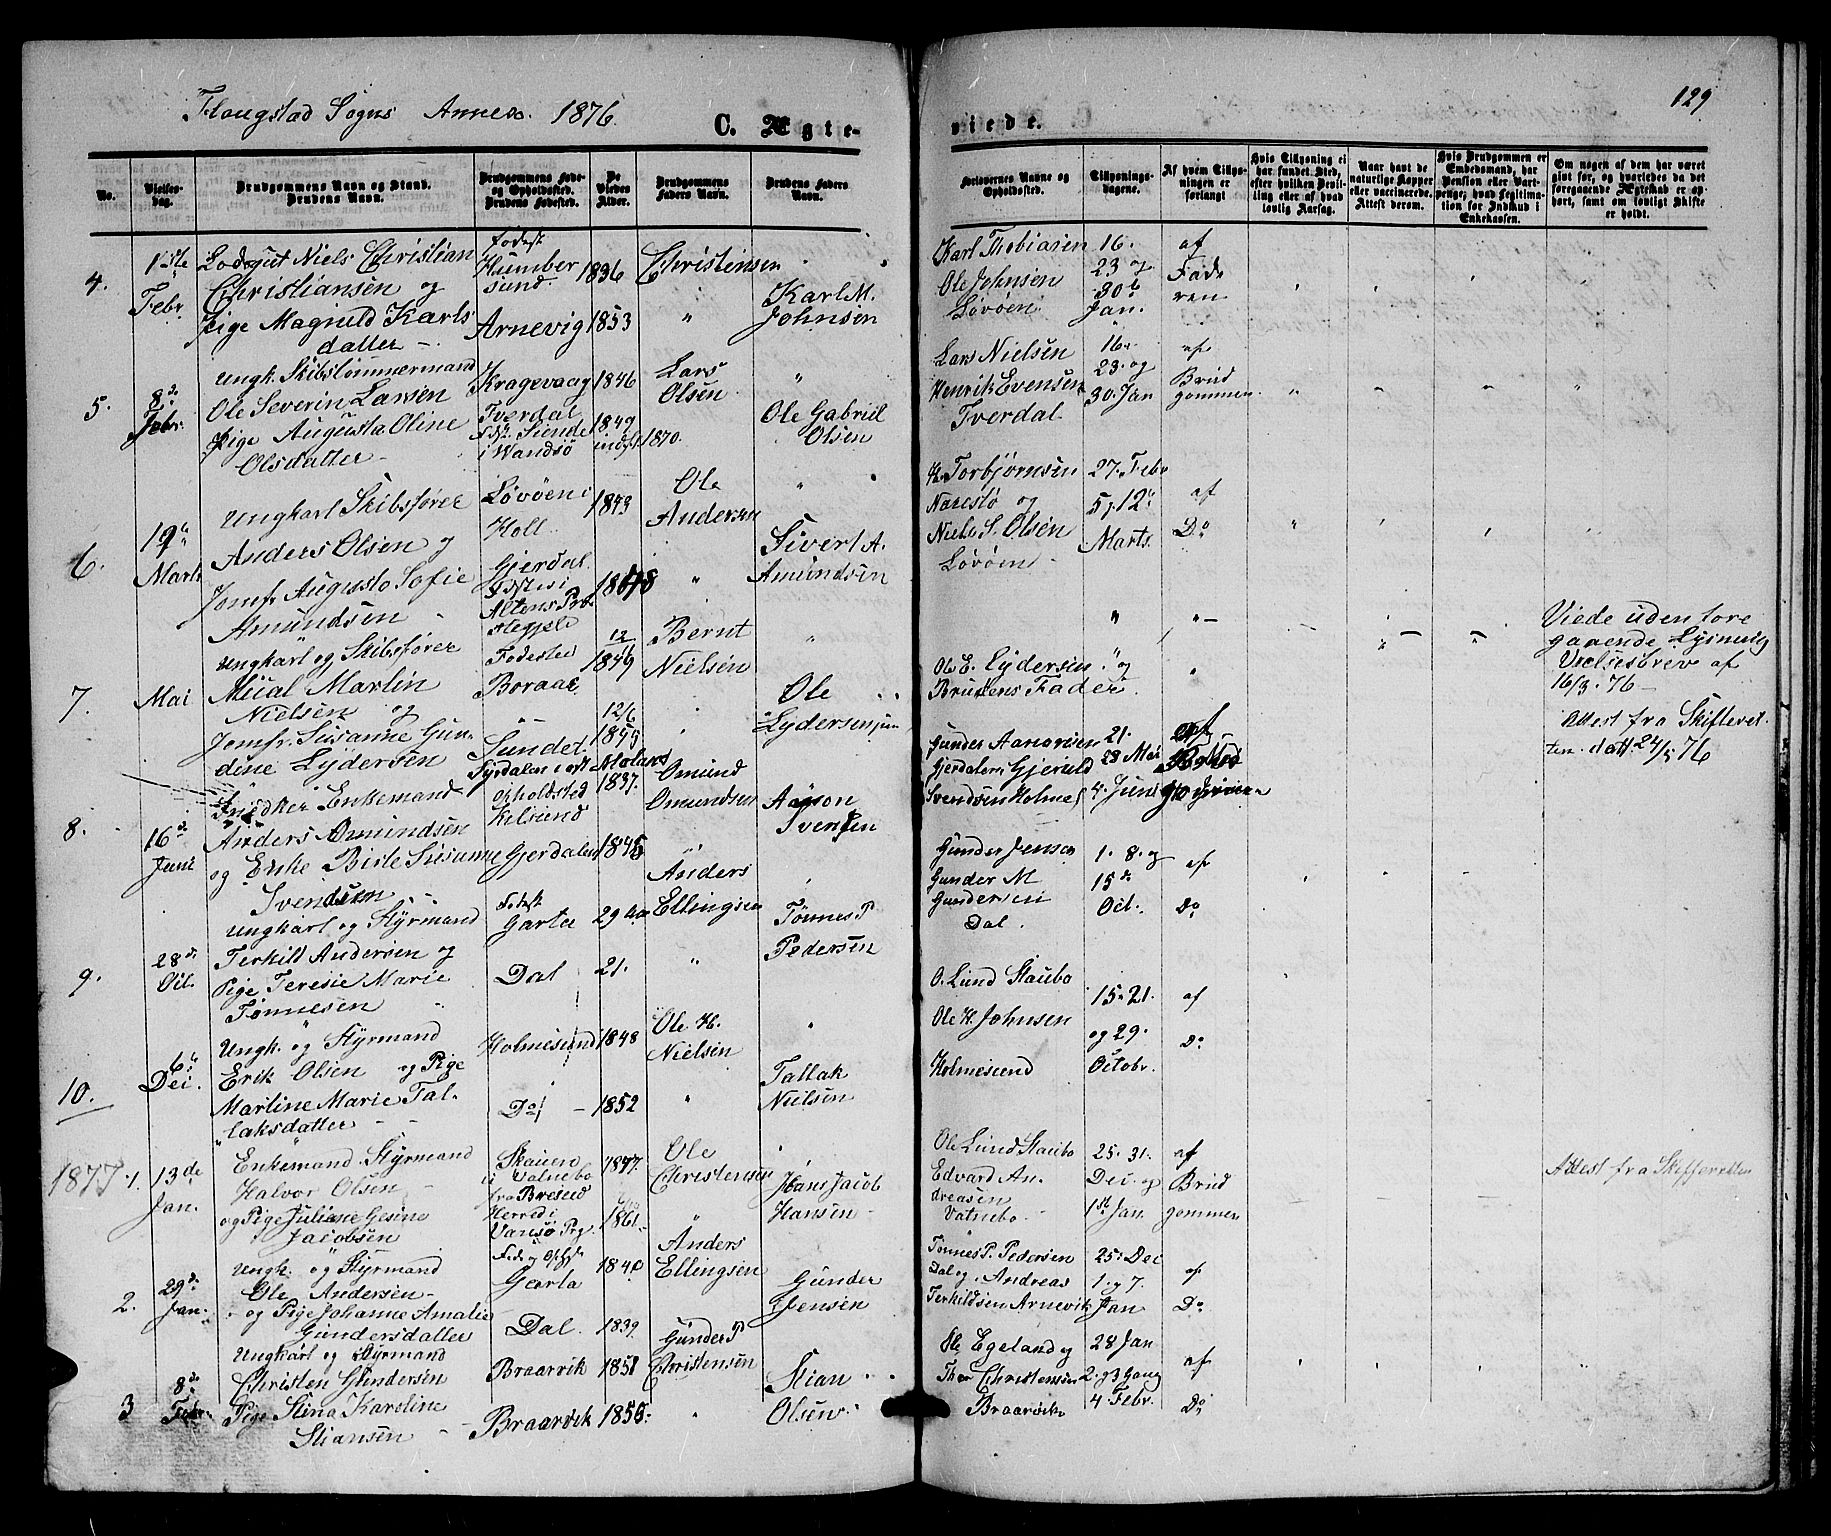 Flougstad Sogns Annex. 1876.
C. Ægte-
viede.
129
No.
Vielses-
dag.
Brudgommens Navn og Stand.
Brudens Navn.
Brudgommens Føde-
og Opholdssted.
Brudens Fødested.
De
Viedes
Alder.
Brudgommens
Faders Navn.
Brudens Faders
Navn.
Forlovernes Navne og
Opholdssted.
Tillysnings-
dagene.
Af hvem Tillys-
ningen er
forlangt
Hvis Tillysning ei
har fundet Sted,
efter hvilken Bevil-
ling eller af hvad
lovlig Aarsag.
Naar havt de
naturlige Kopper
eller vaccinerede.
Attest derom.
Hvis Brudgommen er
Embedsmand, har
Pension eller Vart-
penge, hvad Legitima-
tion for Indskud i
Enkekassen.
Om nogen af dem har været
gift før, og hvorledes da det
foregaaende Ægteskab er op-
hørt, samt om lovligt Skifte
er holdt.
4.
1ste
Febr.
Lodsgut Niels Christian
Christiansen og
Pige Magnild Karls
datter -
Fødest
Humber
sund.
Arnevig
1836
1853
Christensen
"
Karl M.
Johnsen
Karl Thobiasen
Ole Johnsen
Løvøen
16.
23 og
30te
Jan.
af
Fade
ren
5.
8de
Febr.
Ungk. Skibstømmermand
Ole Severin Larsen
Pige Augusta Oline
Olsdatter -
Kragevaag
Tverdal
Fdt. Siende
i Vandsø
1846
1849
indfl. 1870.
Lars
Olsen
Ole Gabriel
Olsen
Lars Nielsen
Henrik Evensen
Tverdal
16.
23. og
30. Jan
af
Brud
gommen
6.
19de
Marts
Ungkarl Skibsfører
Anders Olsen og
Jomfr. Augusta Sofie
Amundsen -
Løvøen i
Holt
Gjerdal
Fdtes i
Altens Præ
stegjeld
1843
1848
Ole
Andersen
Sivert A.
Amundsen
H. Torbjørnsen
Narestø og
Niels S. Olsen
Løvøen -
27. Febr
5, 12te
Marts.
af
Do
7.
Mai
Ungkarl og Skibsfører
Mical Martin
Nielsen og
Jomfr. Susanne Gun-
dine Lydersen
Fødested
Boraas
Sundet
1849
12/6
1855
Bernt
Nielsen
Ole
Lydersen jun
Ole E. Lydersen og
Brudens Fader
Viede uden fore
gaaende Lysning
Vielsesbrev af
16/3. 76 -
8.
16de
Juni
Enkemand
Anders Omundsen
og Enke Birte Susanne
Svendsen -
Opholdsted
Kilsund
Gjerdalen
1837.
1845
Omund
Omundsen
Aanon
Svensen
Gunder Aanonsen
Gjerdalen, Gjeruld
Svendsen Holmes
21.
28 Mai
4. Juni
af
Attest fra Skifteret
ten. datt. 24/5 76
9.
28de
Oct.
Ungkarl og Styrmand
Terkild Andersen og
Pige Teresie Marie
Tønnesen
Fødest
Garta
Dal
29 Aar
21.
Anders
Ellingsen
"
Tønnes P.
Pedersen
Gunder Jensen
Gunder M
Gundersen
Dal.
1. 8. og
15de
Oct.
af
Do
10.
6te
Dec.
Ungk. og Styrmand
Erik Olsen og Pige
Martine Marie Tal-
laksdatter -
Holmesund
Do -
1848
1852
Ole H.
Nielsen
"
Tallak
Nielsen
O. Lund Staubo
Ole H. Johnsen
Holmesund
15. 21.
og 29.
Octobr.
af
Do
1877. 1.
13de
Jan.
Enkemand Styrmand
Halvor Olsen -
og Pige Juliane Gesine
Jacobsen
Skaien
i Vatnebo
fra Bresud
Herred i
Vansø Pg.
1847.
1861.
Ole
Christensen
"
Hans Jacob
Hansen -
Ole Lund Staubo
Edvard An.
dreasen
Vatnebo.
25. 31.
Dec. og
1ste Jan.
af
Brud
gommen
Attest fra Skifteretten
2.
29de
Jan.
Ungk. og Styrmand
Ole Andersen -
og Pige Johanne Amalie
Gundersdatter
Føde og Ophst
Garta
Dal.
1840
1839.
Anders
Ellingsen
Gunder
Jensen
Tønnes P. Pedersen
Dal og Andreas
Terkildsen Arnevik
25. Dec
1. og 7.
Jan
af
Do
3
8de
Febr.
Ungkarl og Styrmand
Christen Gundersen
Pige Stina Karoline
Stiansen -
Braarvik
Braarvik
1851
1855.
Gunder P
Christensen
"
Stian
Olsen.
Egeland og
Thor Christensen
Braarvik
28 Jan
2. og 3 Gang
4 Febr.
af
Do